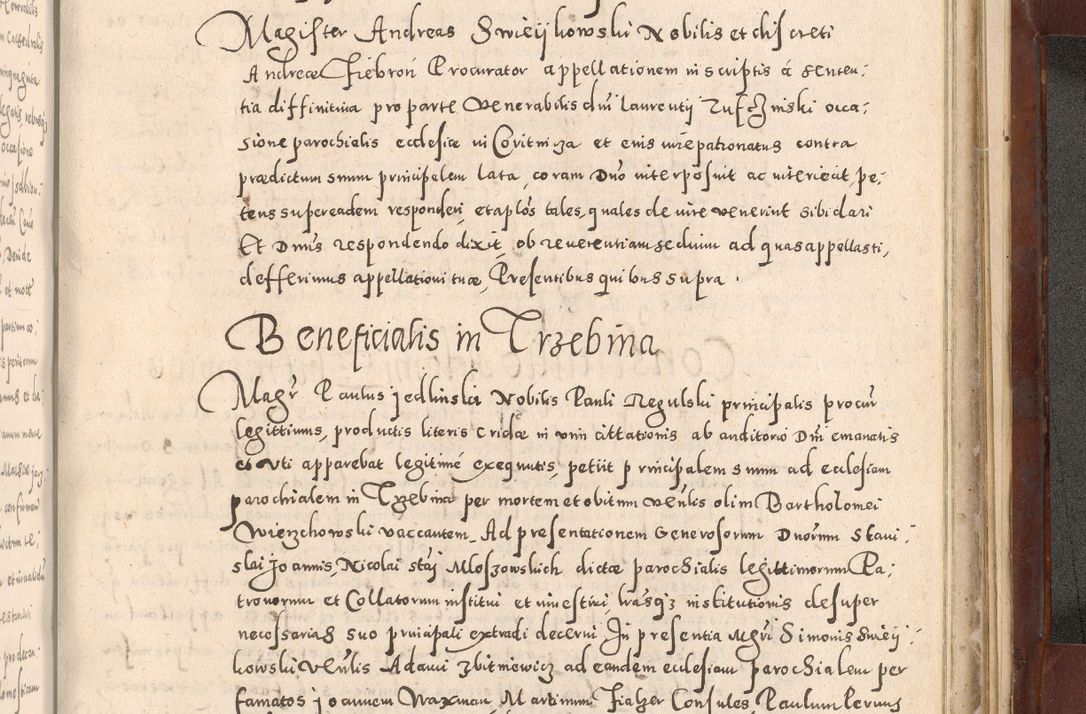 Magister Andreas Swieykowski Nobilis et discreti
Andreæ Fiebron Procurator appellationem in scriptis á senten:
tia diffinitiva pro parte Venerabilis dñi Laurentij occa:
sione parochialis ecclesiæ in et eius iure patronatus contra
prædictum suum principalem lata, coram Dño interposuit ac interiecit, pe:
tens super eadem responderi, et aplõs tales, quales de iure venerint sibi dari
Et Dnũs respondendo dixit, ob reverentiam sedium ad quas appellasti,
defferimus appellationi tuæ, Presentibus quibus supra.
Beneficialis in Trzebina
Magr̃ Paulus jedlinski Nobilis Pauli Regulski principalis procur̃
legittimus, productis literis Cridæ in vim cittationis ab auditorio Dñi emanatis
et vti apparebat legitimé exequutis, petiit principalem suum ad ecclesiam
parochialem in Trzebina per mortem et obitum Veñlis olim Bartholomei
Wierzchowski vaccantem, Ad presentationem Generosorum Dnorum Stani:
slai Joannis, Nicolai Mloszowskich dictæ parochialis legittimorum Pa:
tronorum et Collatorum institui et investiri, lrãsq3 institutionis desuper
necessarias suo principali extradi decerni, In presentia Mgr̃i Simonis Swieÿ:
kowski Veñlis Adami Zbitniewicz ad eandem ecclesiam parochialem per
famatos joannem Waxman Martinum Fialzer Consules Paulum